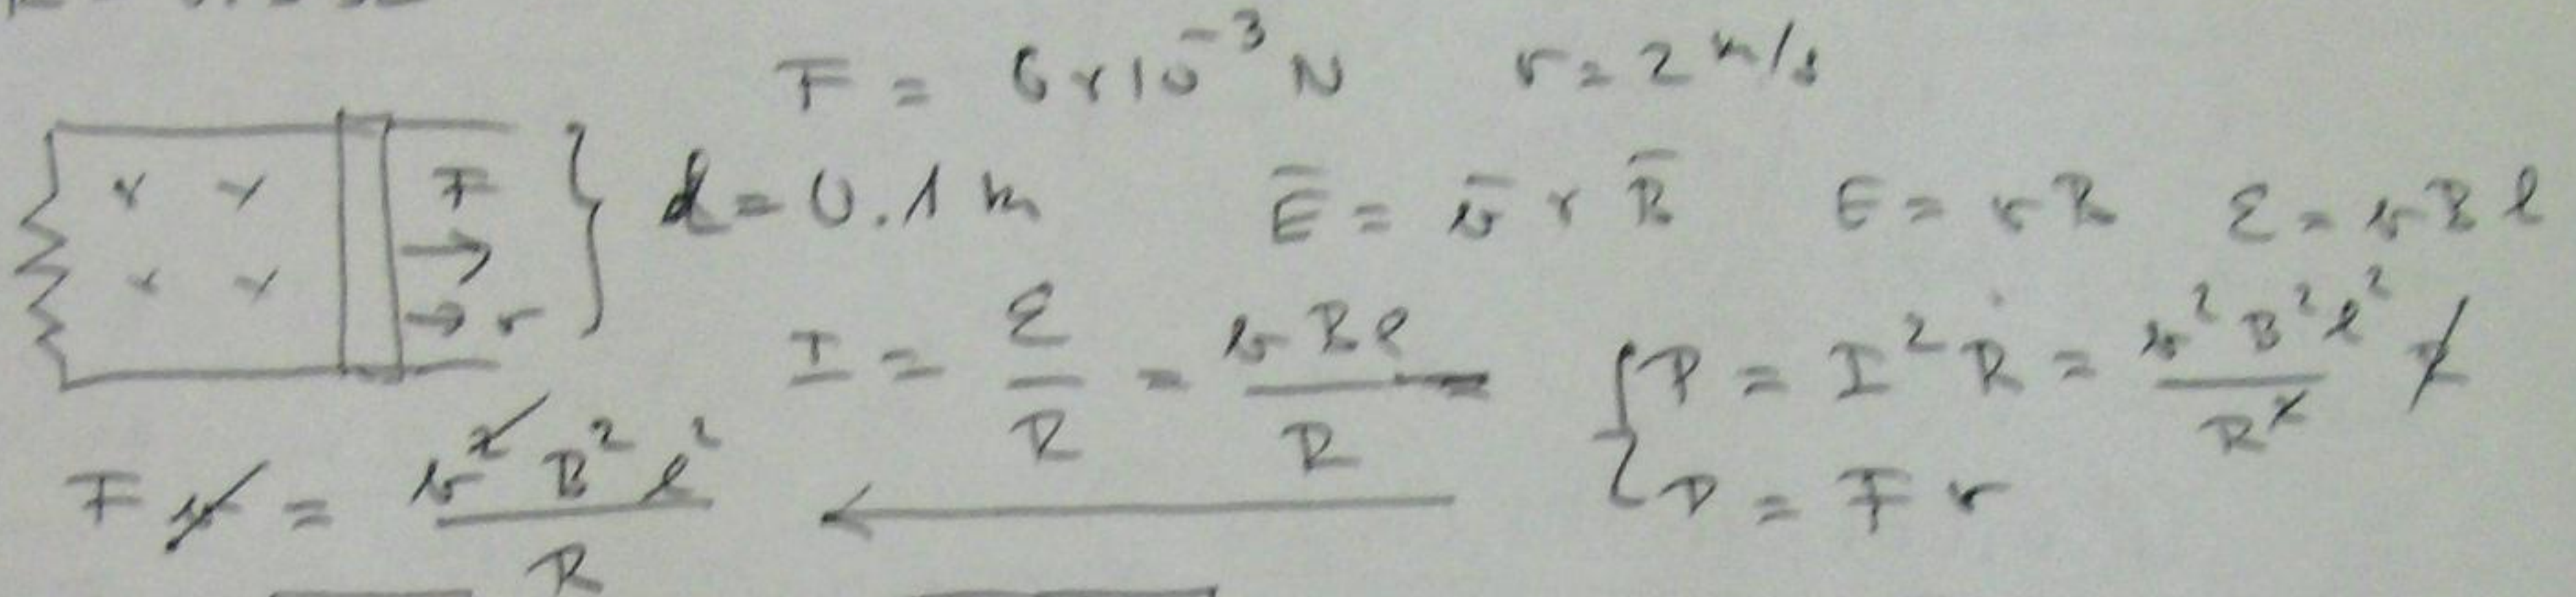 F = 6×10⁻³ N v = 2 m/s
× × F
d = 0.1 m E̅ = v̅ × B̅ E = vB ℰ = vBl
× × → v
I = ℰ/R = vBl/R
P = I²R = v²B²l²/R² R
P = Fv
Fv = v²B²l²/R